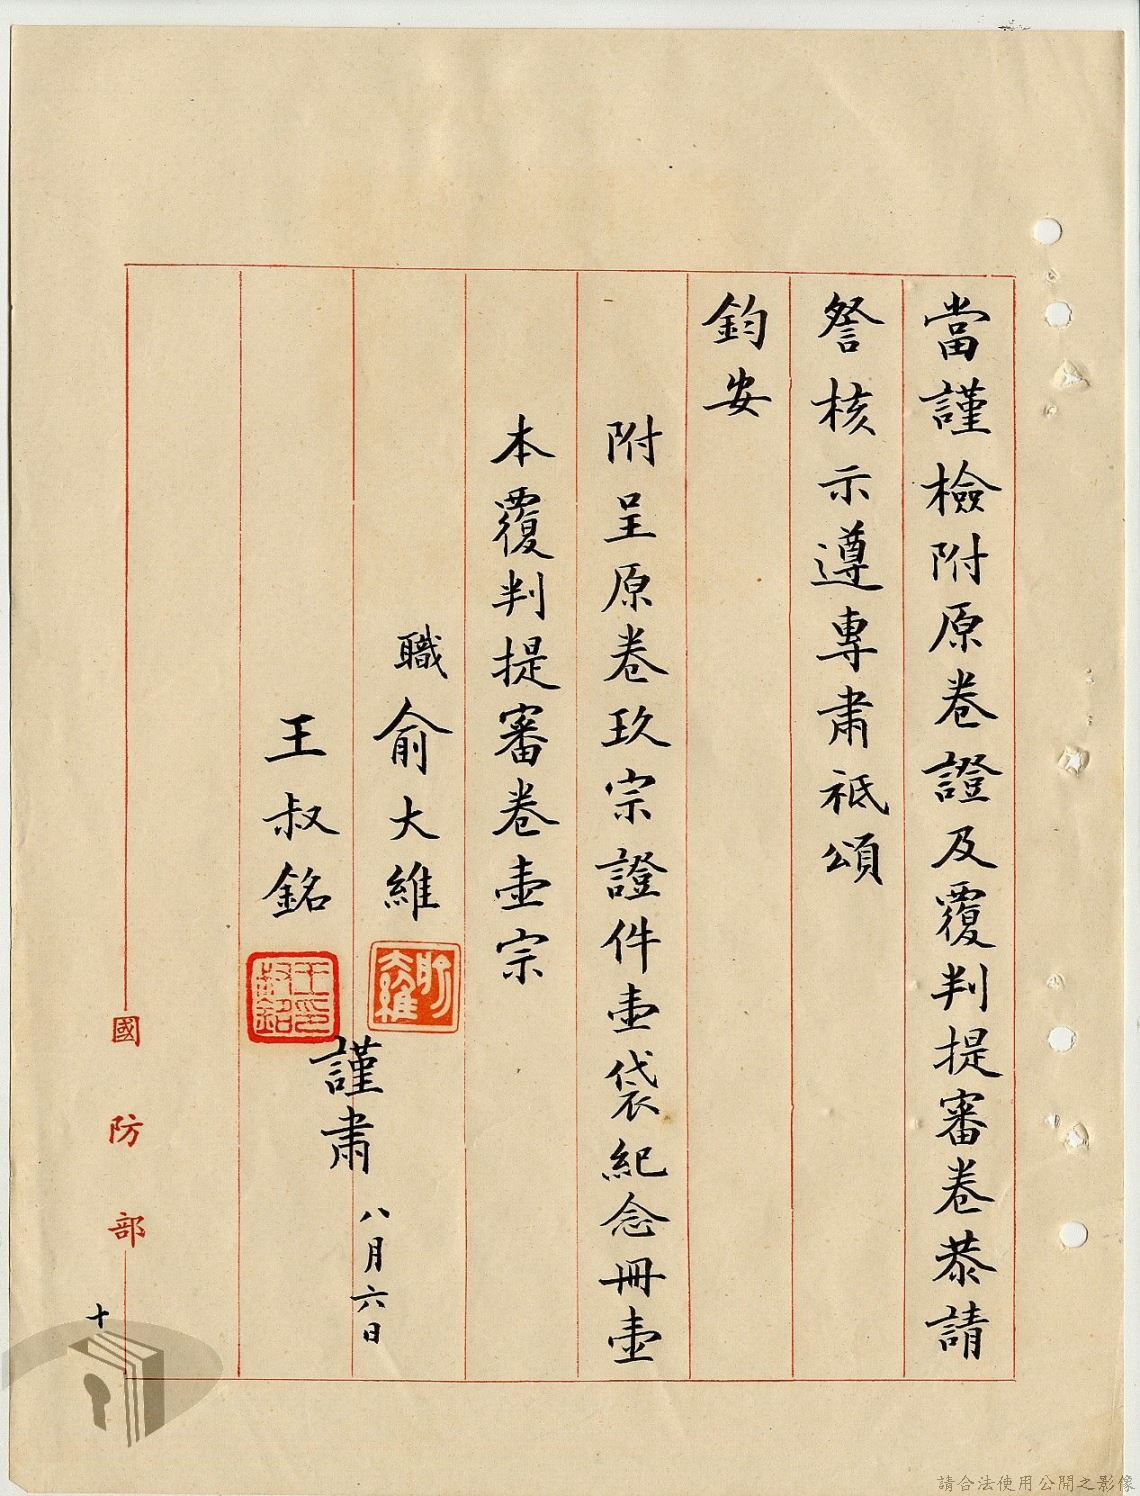 當謹檢附原卷證及覆判提審卷恭請
詧核示遵專肅祗頌
鈞安
附呈原卷玖宗證件壹袋紀念冊壹
本覆判提審卷壹宗
職俞大維
王叔銘
謹肅
八月六日
國防部
十
請合法使用公開之影像